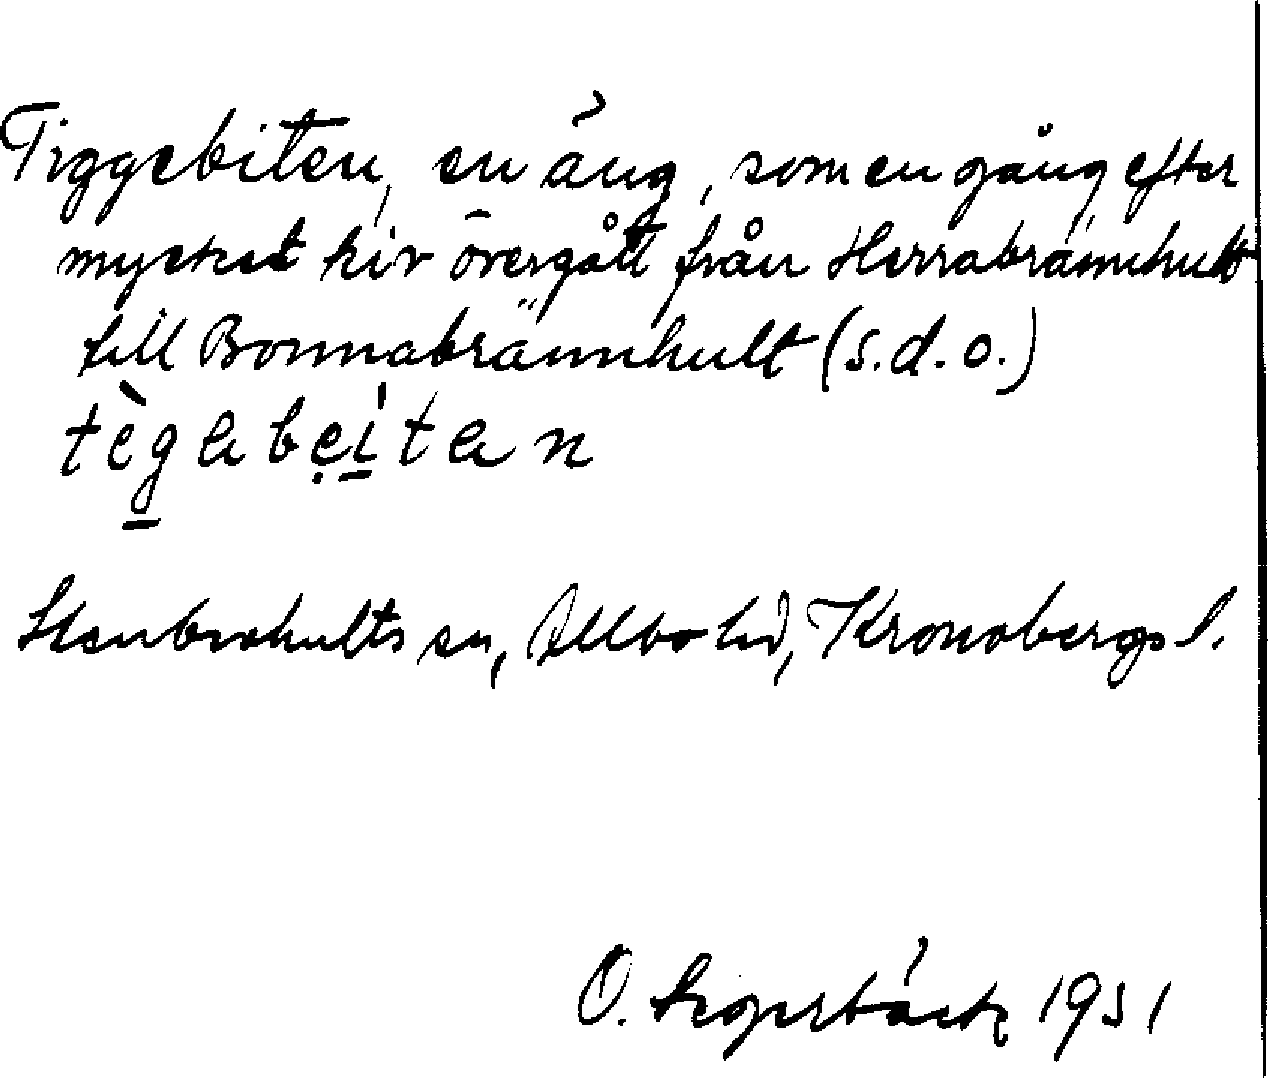 Tiggebiten, en äng, som en gång efter
mycket kiv övergått från Herrabrännhult
till Bonnabrännhult (s.d.o.)
tègabẹitan
Stenbrohults sn, Allbo hd, Kronobergs l.
O. 1951